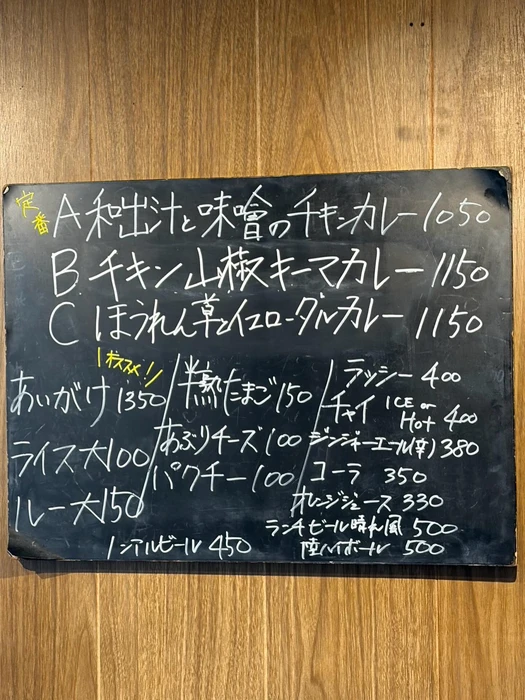 定番
A 和出汁と味噌のチキンカレー 1050
B チキン山椒キーマカレー 1150
C ほうれん草とイエローダルカレー 1150
オススメ!!
あいがけ 1350
ライス大 100
ルー大 150
半熟たまご 150
あぶりチーズ 100
パクチー 100
ラッシー 400
チャイ ICE or Hot 400
ジンジャーエール(辛) 380
コーラ 350
オレンジジュース 330
ランチビール晴れ風 500
陸ハイボール 500
ノンアルビール 450